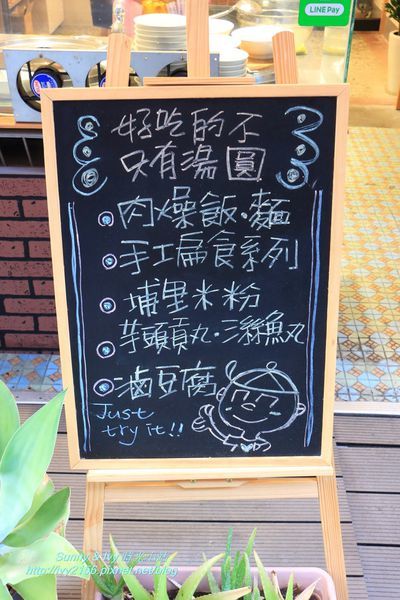 LINE Pay
好吃的不
只有湯圓
肉燥飯·麵
手工扁食系列
埔里米粉
芋頭貢丸·淋鱻魚丸
滷豆腐
Just
try it!!
Sunny & Ivy
http://ivy2166.pixnet.net/blog